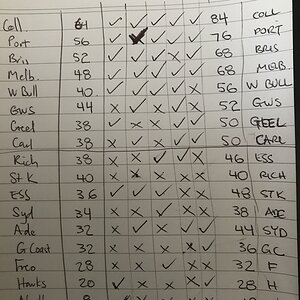 Coll 64 ✓ ✓ ✓ ✓ ✓ 84 COLL
Port 56 ✓ ✓ ✓ ✓ ✓ 76 PORT
Bris 52 ✓ ✓ ✓ ✓ 68 BRIS
Melb. 48 ✓ ✓ ✓ ✓ ✓ 68 MELB.
W Bull 40 ✓ ✓ ✓ ✓ x 56 W BULL
GWS 44 x ✓ x ✓ x 52 GWS
Geel 38 ✓ x x ✓ ✓ 50 GEEL
Carl 38 x x ✓ ✓ ✓ 50 CARL
Rich 38 x x ✓ ✓ x 46 ESS
St K 40 x x x x x 40 RICH
ESS 36 ✓ ✓ ✓ x x 48 STK
Syd 34 x x ✓ x x 38 ADE
Ade 32 ✓ x ✓ x ✓ 44 SYD
G Coast 32 x x x ✓ x 36 GC
Freo 28 x x ✓ x x 32 F
Hawks 20 ✓ x x x ✓ 28 H